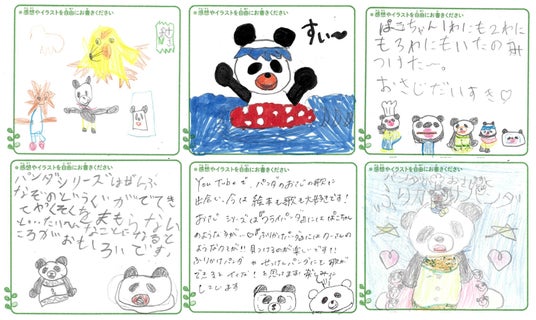 ※感想やイラストを自由にお書きください
※感想やイラストを自由にお書きください
すい〜
※感想やイラストを自由にお書きください
ぱさちゃん1わにも2わに
も3わにもいたのみ
つけた〜。
おさじだいすき♡
※感想やイラストを自由にお書きください
パンダシリーズはぜんぶ
なぞのどうぐがでてき
てやくそくをまもらない
と…たいへんなことになると
ころがおもしろいです。
※感想やイラストを自由にお書きください
YouTubeで、パンダのおさじの歌に
出会い、今は絵本も歌も大好きです!
おさじシリーズは
見つけるのが楽しいです!!
ふりかけパンダや せっけんパンダにも歌が
できるといいな!と思います! 楽しみに
しています
※感想やイラストを自由にお書きください